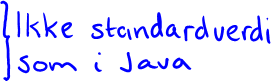 Ikke standardverdi
som i Java